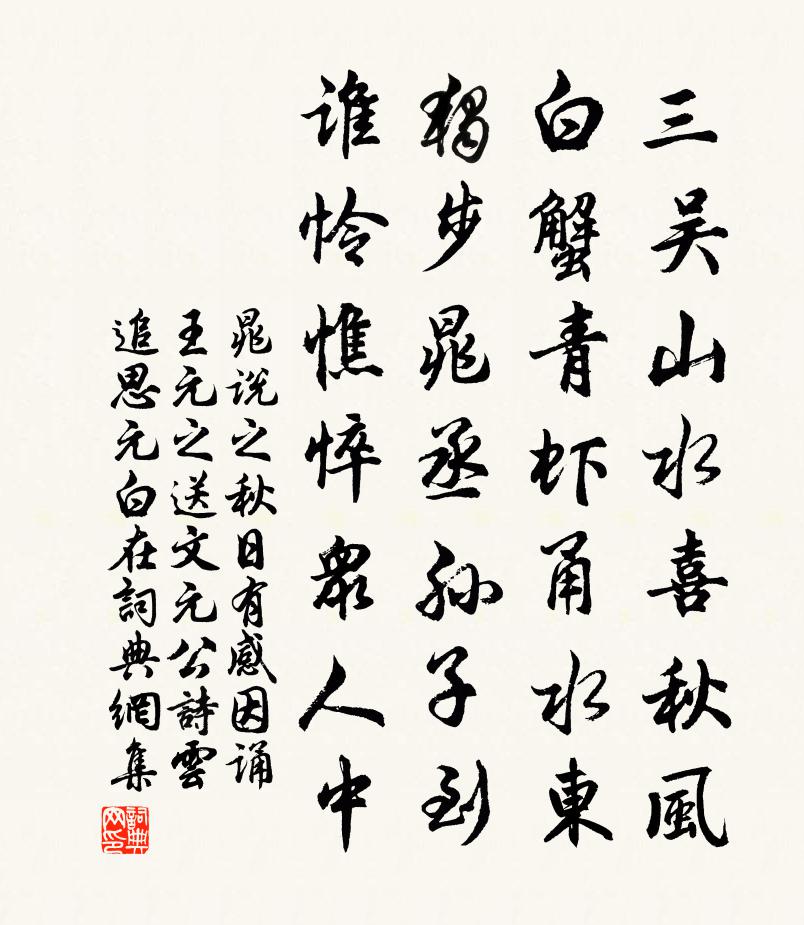 三吴山水喜秋風
白蟹青虾甬水東
獨步晁丞孫子到
谁怜憔悴眾人中
晁说之秋日有感因诵
王元之送文元公詩雲
追思元白在詞典網集
詞典网印